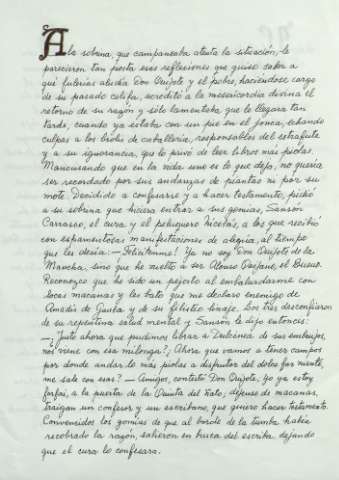 A la sobrina, que campaneaba atenta la situación, le
parecieron tan piolas esas reflexiones que quiso saber a
qué fulerías aludía Don Quijote y el pobre, haciéndose cargo
de su pasado colifa, acreditó a la misericordia divina el
retorno de su razón y sólo lamentaba que le llegara tan
tarde, cuando ya estaba con un pie en el jonca, echando
culpas a los brolis de caballería, responsables del estrafute
y a su ignorancia, que lo privó de leer libros más piolas.
Mancusando que en la vida uno es lo que deja, no quería
ser recordado por sus andanzas de piantao ni por su
mote. Decidido a confesarse y a hacer testamento, pidió
a su sobrina que hiciera entrar a sus gomías, Sansón
Carrasco, el cura y el peluquero Nicolás, a los que recibió
con espamentosas manifestaciones de alegría, al tiempo
que les decía: — Felicítenme! Ya no soy Don Quijote de la
Mancha, sino que he vuelto a ser Alonso Quijano, el Bueno.
Reconozco que he sido un pejerto al embalurdarme con
locas macanas y les bato que me declaro enemigo de
Amadís de Gaula y de su fulístico linaje. Los tres desconfiaron
de su repentina salud mental y Sansón le dijo entonces:
— ¿Justo ahora que pudimos librar a Dulcinea de sus embrujos,
nos viene con esa milonga? ¿Ahora que vamos a tener campos
por donde andar lo más piolas a disfrutar del dolce far niente,
me sale con esas? — Amigos, contestó Don Quijote, yo ya estoy
forfai, a la puerta de la Quinta del Ñato, déjense de macanas,
traigan un confesor y un escribano, que quiero hacer testamento.
Convencidos los gomías de que al borde de la tumba había
recobrado la razón, salieron en busca del escriba, dejando
que el cura lo confesara.